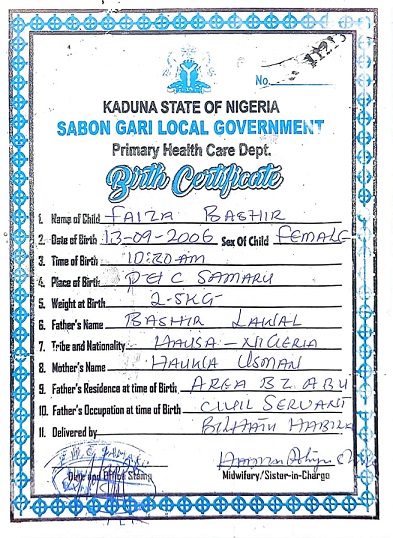 No.
KADUNA STATE OF NIGERIA
SABON GARI LOCAL GOVERNMENT
Primary Health Care Dept.
Birth Certificate
1. Name of Child FAIZA BASHIR
2. Date of Birth 13-09-2006 Sex Of Child FEMALE
3. Time of Birth 10:20 AM
4. Place of Birth SAMARU
5. Weight at Birth 2.5KG
6. Father's Name BASHIR LAWAL
7. Tribe and Nationality HAUSA - NIGERIA
8. Mother's Name HAUWA USMAN
9. Father's Residence at time of Birth AREA BZ ABU
10. Father's Occupation at time of Birth CIVIL SERVANT
11. Delivered by
Date and Office Stamp Midwifery/Sister-in-Charge